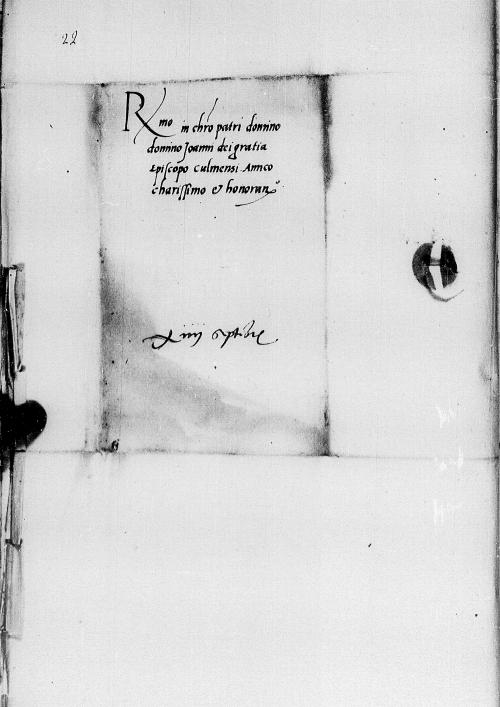 22
Rmo in chro patri domino
domino Joanni dei gratia
Episcopo Culmensi Amico
charissimo & honoran
xiiij septbris